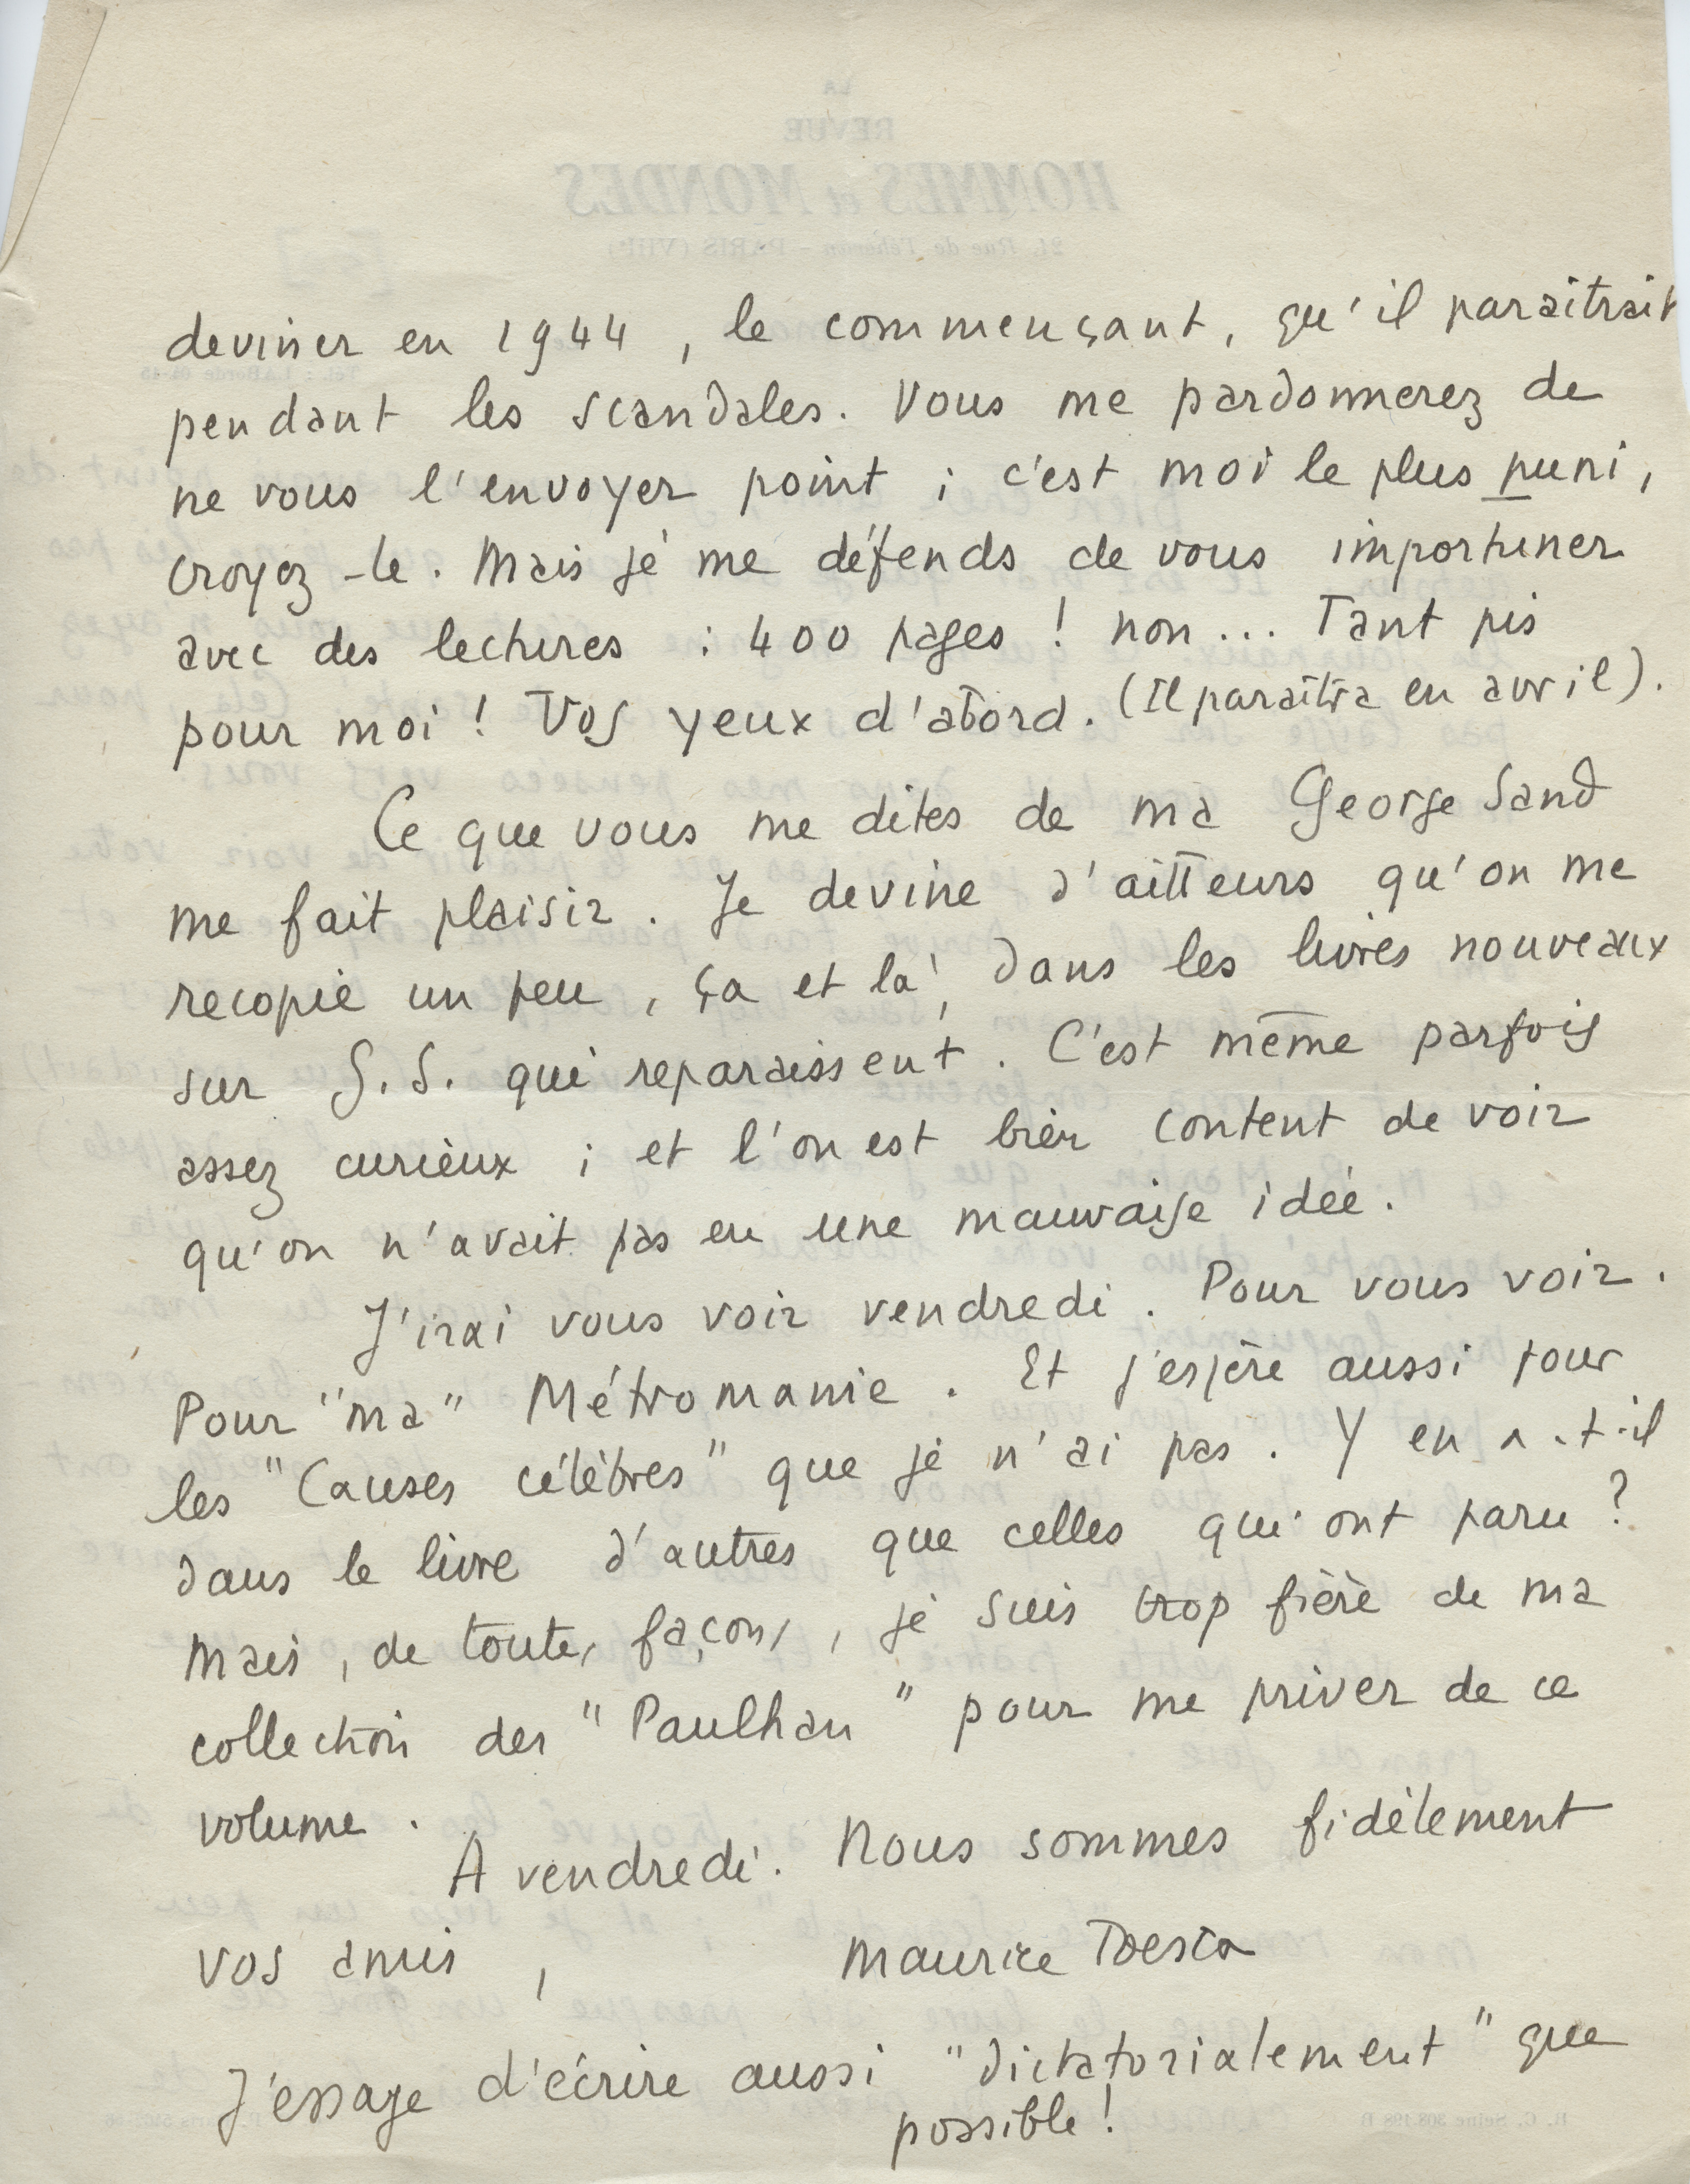 deviner en 1944, le commençant, qu'il paraîtrait
pendant les scandales. Vous me pardonnerez de
ne vous l'envoyer point ; c'est moi le plus puni,
croyez-le. Mais je me défends de vous importuner
avec des lectures : 400 pages ! non... Tant pis
pour moi ! Vos yeux d'abord. (Il paraîtra en avril).
Ce que vous me dites de ma George Sand
me fait plaisir. Je devine d'ailleurs qu'on me
recopie un peu, ça et là, dans les livres nouveaux
sur G.S. qui reparaissent. C'est même parfois
assez curieux ; et l'on est bien content de voir
qu'on n'avait pas eu une mauvaise idée.
J'irai vous voir vendredi. Pour vous voir.
Pour "ma" Métromanie. Et j'espère aussi pour
les "Causes célèbres" que je n'ai pas. Y en a-t-il
dans le livre d'autres que celles qui ont paru ?
Mais, de toutes façons, je suis trop fière de ma
collection des "Paulhan" pour me priver de ce
volume.
A vendredi. Nous sommes fidèlement
vos amis,
Maurice Toesca
J'essaye d'écrire aussi "dictatorialement" que
possible !